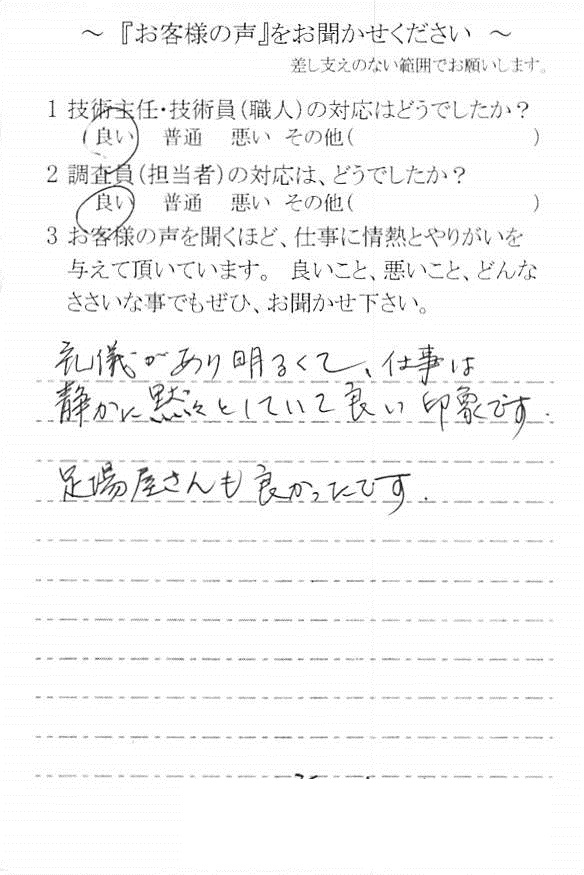 ～ 『お客様の声』をお聞かせください ～
差し支えのない範囲でお願いします。
1 技術主任・技術員(職人)の対応はどうでしたか？
(良い 普通 悪い その他( )
2 調査員(担当者)の対応は、どうでしたか？
良い 普通 悪い その他( )
3 お客様の声を聞くほど、仕事に情熱とやりがいを
与えて頂いています。 良いこと、悪いこと、どんな
ささいな事でもぜひ、お聞かせ下さい。
礼儀があり明るくて、仕事は
静かに黙々としていて良い印象です.
足場屋さんも良かったです.